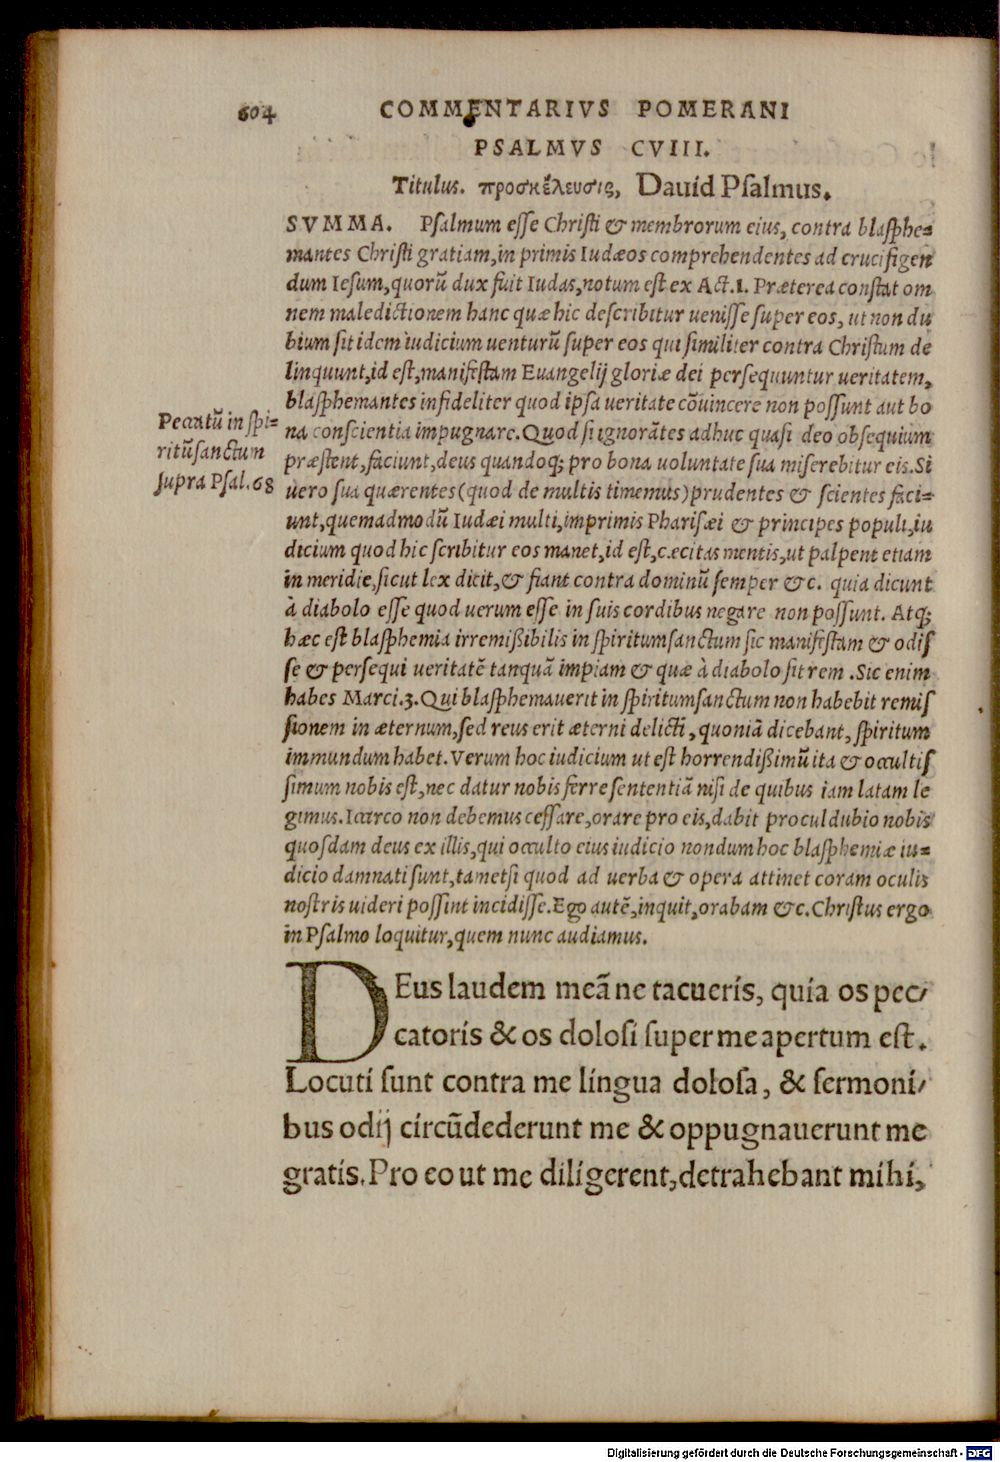 604 COMMENTARIVS POMERANI
PSALMVS CVIII.
Titulus. προσκέλευσις, Dauid Psalmus.
SVMMA. Psalmum esse Christi & membrorum eius, contra blasphe=
mantes Christi gratiam, in primis Iudæos comprehendentes ad crucifigen
dum Iesum, quorū dux fuit Iudas, notum est ex Act.1. Præterea constat om
nem maledictionem hanc quæ hic describitur uenisse super eos, ut non du
bium sit idem iudicium uenturū super eos qui similiter contra Christum de
linquunt, id est, manifestam Euangelij gloriæ dei persequuntur ueritatem,
blasphemantes infideliter quod ipsa ueritate cōuincere non possunt aut bo
na conscientia impugnare. Quod si ignorātes adhuc quasi deo obsequium
præstent, faciunt, deus quandoq; pro bona uoluntate sua miserebitur eis. Si
uero sua quærentes (quod de multis timemus) prudentes & scientes faci=
unt, quemadmodū Iudæi multi, imprimis Pharisæi & principes populi, iu
dicium quod hic scribitur eos manet, id est, cæcitas mentis, ut palpent etiam
in meridie, sicut lex dicit, & fiant contra dominū semper &c. quia dicunt
à diabolo esse quod uerum esse in suis cordibus negare non possunt. Atq;
hæc est blasphemia irremißibilis in spiritumsanctum sic manifestam & odis
se & persequi ueritatē tanquā impiam & quæ à diabolo sit rem. Sic enim
habes Marci.3. Qui blasphemauerit in spiritumsanctum non habebit remis
sionem in æternum, sed reus erit æterni delicti, quoniā dicebant, spiritum
immundum habet. Verum hoc iudicium ut est horrendißimū ita & occultis
simum nobis est, nec datur nobis ferre sententiā nisi de quibus iam latam le
gimus. Icirco non debemus cessare, orare pro eis, dabit proculdubio nobis
quosdam deus ex illis, qui occulto eius iudicio nondum hoc blasphemiæ iu=
dicio damnati sunt, tametsi quod ad uerba & opera attinet coram oculis
nostris uideri possint incidisse. Ego autē, inquit, orabam &c. Christus ergo
in Psalmo loquitur, quem nunc audiamus.
Peccatū in spi=
ritūsanctum
supra Psal.68
DEus laudem meā ne tacueris, quia os pec/
catoris & os dolosi super me apertum est.
Locuti sunt contra me lingua dolosa, & sermoni/
bus odij circūdederunt me & oppugnauerunt me
gratis. Pro eo ut me diligerent, detrahebant mihi,
Digitalisierung gefördert durch die Deutsche Forschungsgemeinschaft - DFG